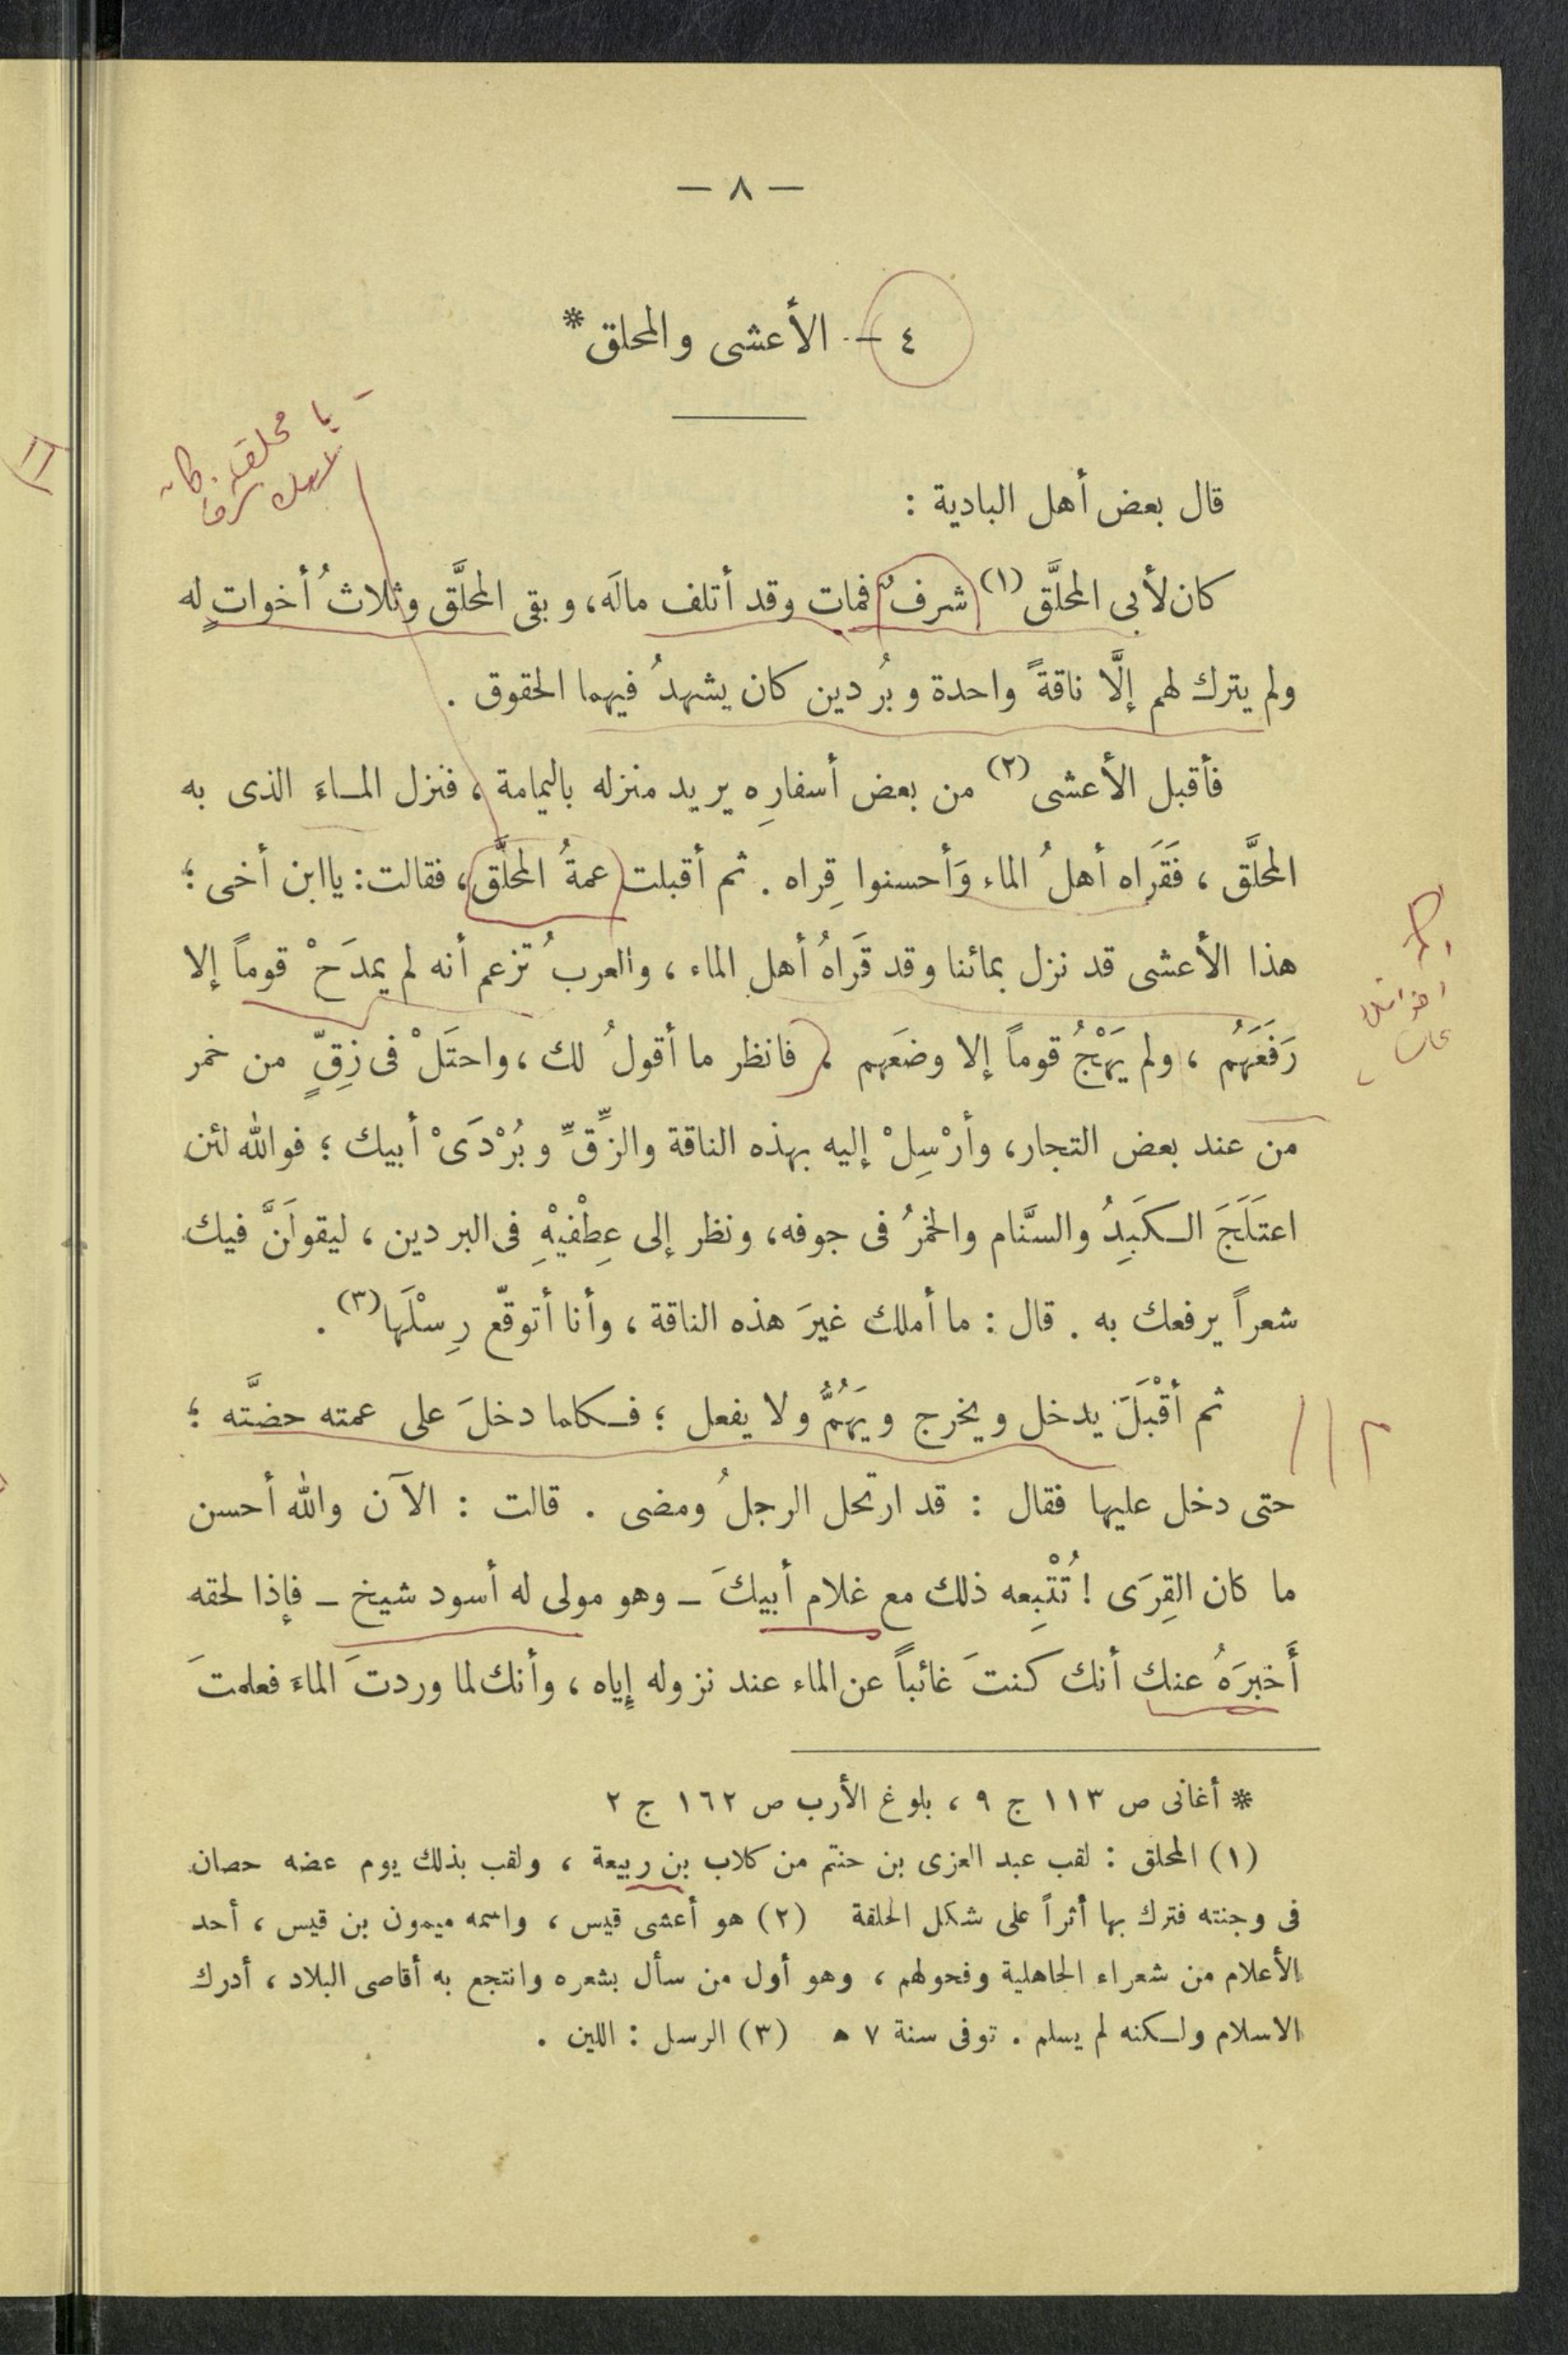 — ٨ —
٤ — الأعشى والمحلق *
يا محلق كان
لأبيك شرف
قال بعض أهل البادية :
كان لأبى المحلَّق (١) شرفٌ فمات وقد أتلف مالَه، وبقى المحلَّق وثلاثُ أخواتٍ له
ولم يترك لهم إلَّا ناقةً واحدة وبُردين كان يشهدُ فيهما الحقوق .
فأقبل الأعشى (٢) من بعض أسفارِه يريد منزله باليمامة ، فنزل المـاءَ الذى به
المحلَّق ، فَقَرَاه أهلُ الماء وَأحسنوا قِراه . ثم أقبلت عمةُ المحلَّق ، فقالت : يا ابن أخى ؛
هذا الأعشى قد نزل بمائنا وقد قَرَاهُ أهل الماء ، والعربُ تزعم أنه لم يمدَحْ قوماً إلا
رَفَعَهُم ، ولم يَهْجُ قوماً إلا وضَعَهم ، فانظر ما أقولُ لك ، واحتَلْ فى زِقٍّ من خمر
من عند بعض التجار، وأرْسِلْ إليه بهذه الناقة والزِّقِّ وبُرْدَىْ أبيك ؛ فوالله لئن
اعتَلَجَ الـكَبِدُ والسَّنام والخمرُ فى جوفه، ونظر إلى عِطْفيْهِ فى البردين ، ليقولَنَّ فيك
شعراً يرفعك به . قال : ما أملك غيرَ هذه الناقة ، وأنا أتوقّع رِسْلَها (٣) .
ثم أقْبَلَ يدخل ويخرج ويَهُمُّ ولا يفعل ؛ فـكلما دخلَ على عمته حضَّته ؛
حتى دخل عليها فقال : قد ارتحل الرجلُ ومضى . قالت : الآن والله أحسن
ما كان القِرَى ! تُتْبِعه ذلك مع غلام أبيكَ – وهو مولى له أسود شيخ – فإذا لحقه
أَخبَرَهُ عنك أنك كنتَ غائباً عن الماء عند نزوله إياه ، وأنك لما وردتَ الماءَ فعلمتَ
* أغانى ص ١١٣ ج ٩ ، بلوغ الأرب ص ١٦٢ ج ٢
(١) المحلق : لقب عبد العزى بن حنتم من كلاب بن ربيعة ، ولقب بذلك يوم عضه حصان
فى وجنته فترك بها أثراً على شكل الحلقة (٢) هو أعشى قيس ، واسمه ميمون بن قيس ، أحد
الأعلام من شعراء الجاهلية وفحولهم ، وهو أول من سأل بشعره وانتجع به أقاصى البلاد ، أدرك
الاسلام ولـكنه لم يسلم . توفى سنة ٧ ه (٣) الرسل : اللبن .